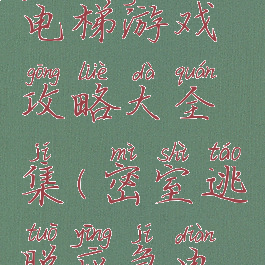 电梯游戏
gōng lüè dà quán
攻略大全
jí mì shì táo
集(密室逃
tuō yīng jí diàn